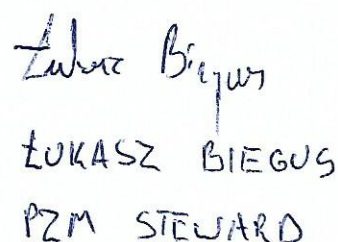 Łukasz Biegus
ŁUKASZ BIEGUS
PZM STEWARD